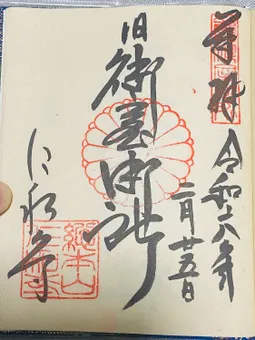 奉拝
令和六年
二月廿五日
旧御室御所
仁和寺
總本山
仁和寺